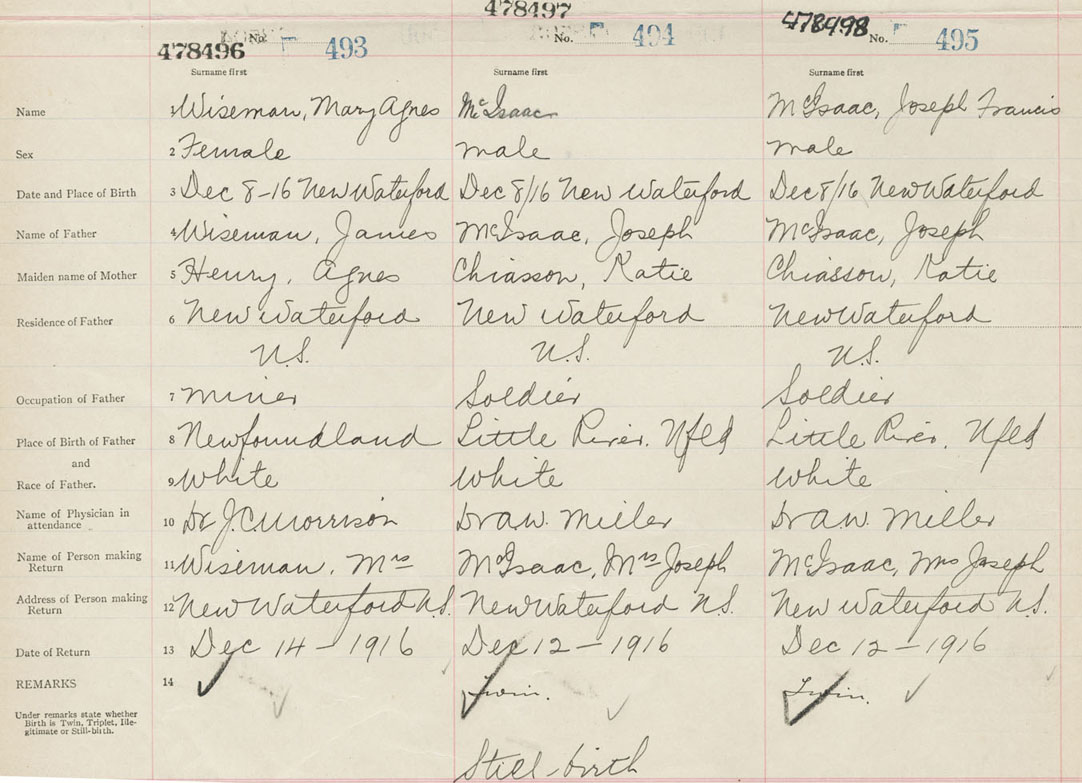 478496 No. F 493 478497 No. F 494 478498 No. F 495
Surname first Surname first Surname first
Name 1 Wiseman, Mary Agnes McIsaac McIsaac, Joseph Francis
Sex 2 Female male male
Date and Place of Birth 3 Dec 8-16 New Waterford Dec 8/16 New Waterford Dec 8/16 New Waterford
Name of Father 4 Wiseman, James McIsaac, Joseph McIsaac, Joseph
Maiden name of Mother 5 Henry, Agnes Chiasson, Katie Chiasson, Katie
Residence of Father 6 New Waterford New Waterford New Waterford
N.S. N.S. N.S.
Occupation of Father 7 miner Soldier Soldier
Place of Birth of Father 8 Newfoundland Little River, Nfld Little River, Nfld
and
Race of Father. 9 White White White
Name of Physician in attendance 10 Dr J.C. Morrison Dr A.W. Miller Dr A.W. Miller
Name of Person making Return 11 Wiseman, Mrs McIsaac, Mrs Joseph McIsaac, Mrs Joseph
Address of Person making Return 12 New Waterford N.S. New Waterford N.S. New Waterford N.S.
Date of Return 13 Dec 14-1916 Dec 12-1916 Dec 12-1916
REMARKS 14 Twin. Twin.
Under remarks state whether
Birth is Twin, Triplet, Ille-
gitimate or Still-birth.
Still-birth